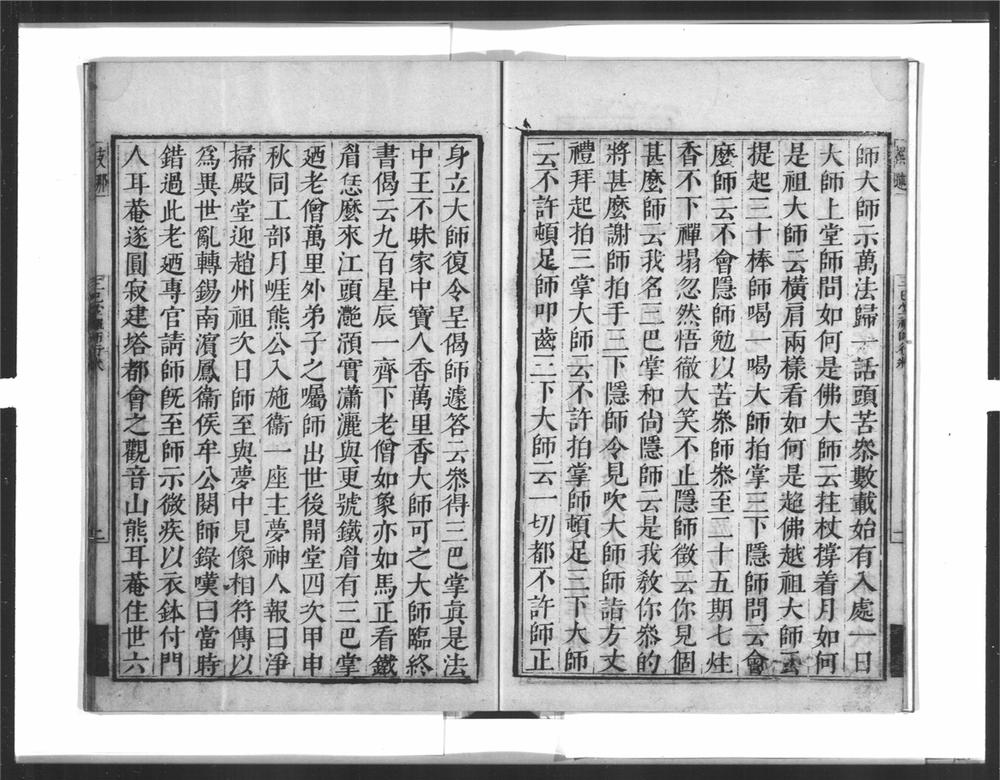 師大師示萬法歸一話頭苦叅數載始有入處一日
大師上堂師問如何是佛大師云拄杖撐着月如何
是祖大師云橫肩兩樣看如何是超佛越祖大師云
提起三十棒師喝一喝大師拍掌三下隱師問云會
麼師云不會隱師勉以苦叅師叅至二十五期七炷
香不下禪榻忽然悟徹大笑不止隱師徵云你見個
甚麼師云我名三巴掌和尙隱師云是我敎你叅的
將甚麼謝師拍手三下隱師令見吹大師師詣方丈
禮拜起拍三掌大師云不許拍掌師頓足三下大師
云不許頓足師叩齒二下大師云一切都不許師正
身立大師復令呈偈師遽答云叅得三巴掌真是法
中王不昧家中寶人香萬里香大師可之大師臨終
書偈云九百星辰一齊下老僧如象亦如馬正看鐵
眉恁麼來江頭灔澦實瀟灑與更號鐵眉有三巴掌
廼老僧萬里外弟子之囑師出世後開堂四次甲申
秋同工部月崕熊公入施衞一座主夢神人報曰淨
掃殿堂迎趙州祖次日師至與夢中見像相符傳以
爲異世亂轉錫南濱鳳衞侯牟公閱師錄嘆曰當時
錯過此老廼專官請師旣至師示微疾以衣鉢付門
人耳菴遂圓寂建塔都會之觀音山熊耳菴住世六